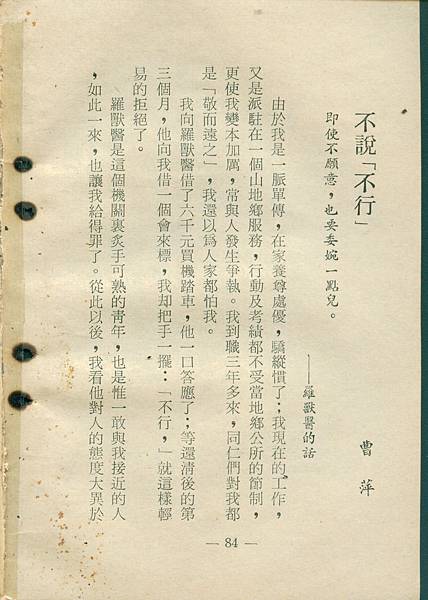 不說「不行」
曹萍
即使不願意，也要委婉一點兒。
——羅獸醫的話
由於我是一脈單傳，在家養尊處優，驕縱慣了；我現在的工作，
又是派駐在一個山地鄉服務，行動及考績都不受當地鄉公所的節制，
更使我變本加厲，常與人發生爭執。我到職三年多來，同仁們對我都
是「敬而遠之」，我還以爲人家都怕我。
我向羅獸醫借了六千元買機踏車，他一口答應了；等還清後的第
三個月，他向我借一個會來標，我却把手一擺：「不行，」就這樣輕
易的拒絕了。
羅獸醫是這個機關裏炙手可熱的青年，也是惟一敢與我接近的人
，如此一來，也讓我給得罪了。從此以後，我看他對人的態度大異於
— 84 —